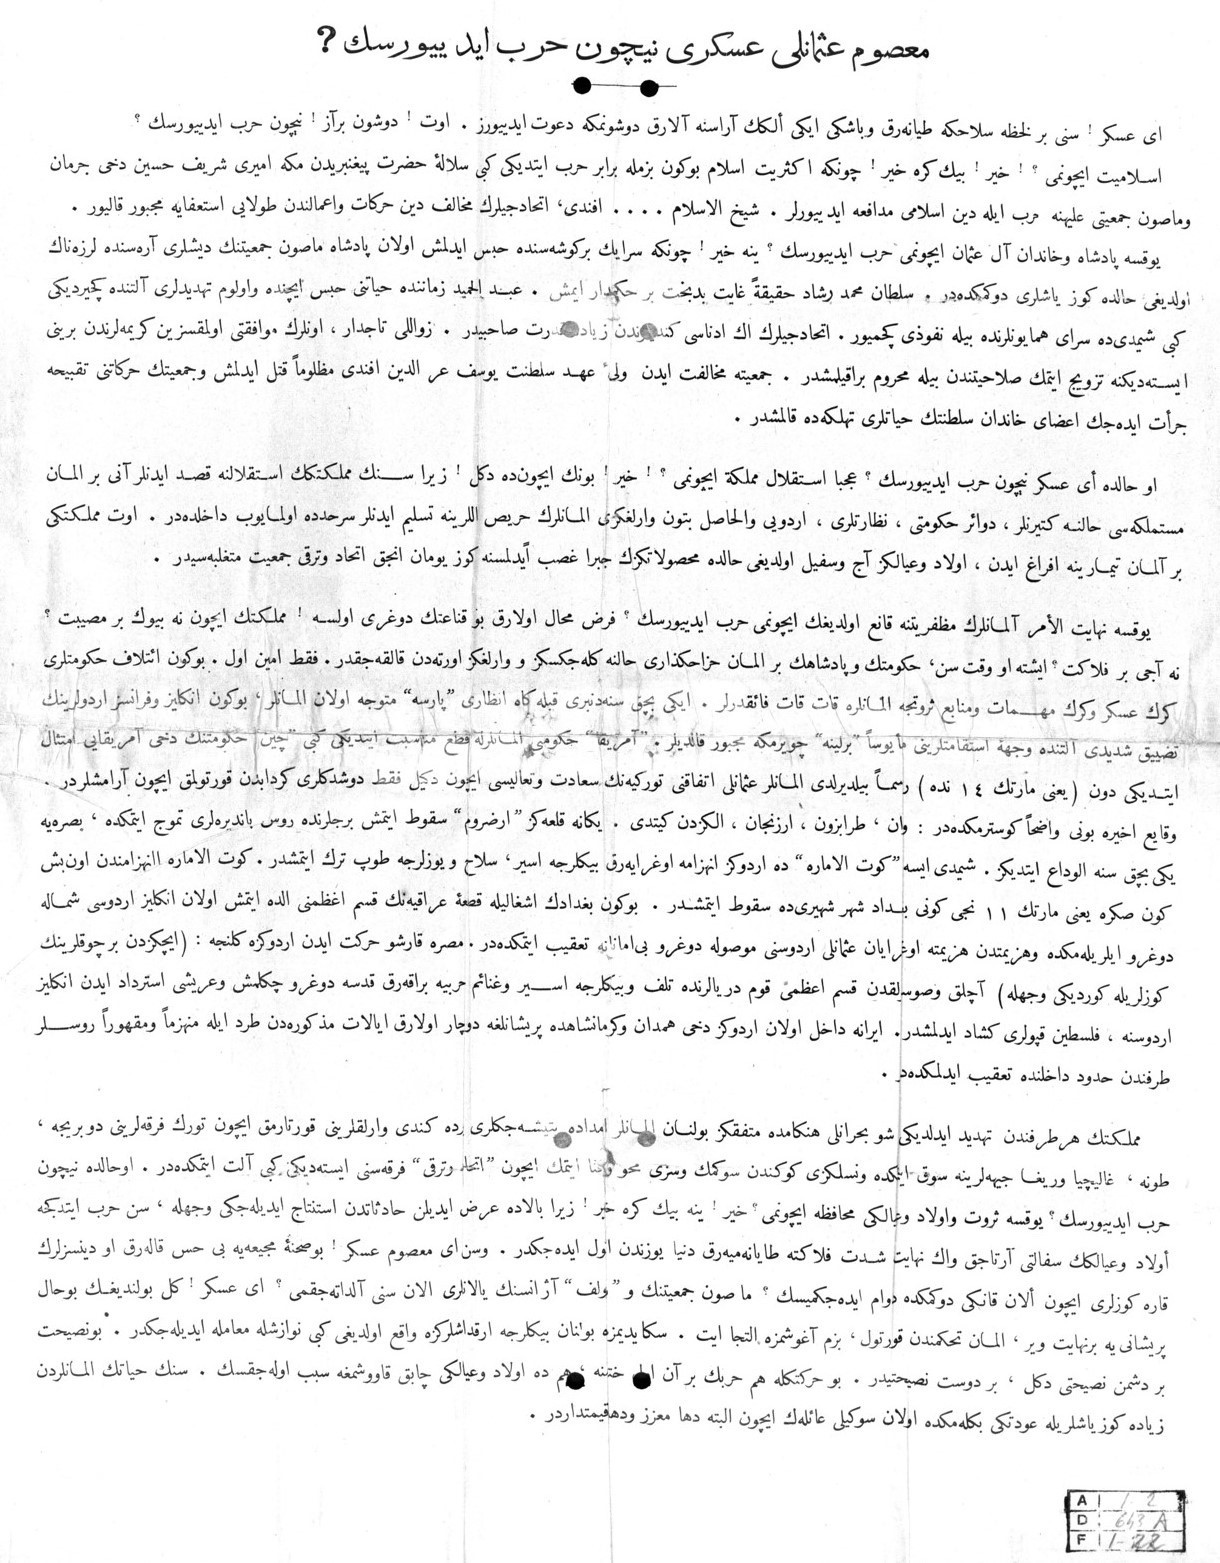 معصوم عثمانلی عسكری نیچون حرب اید ییورسك ؟
ای عسكر ! سنی بر لحظه سلاحكه طیانه‌رق وباشكی ایكی ألكك آراسنه آلارق دوشونمكه دعوت ایدییورز . اوت ! دوشون برآز ! نیچون حرب ایدییورسك ؟
اسلامیت ایچونمی ؟ ! خیر ! بیك كره خیر ! چونكه اكثریت اسلام بوكون بزمله برابر حرب ایتدیكی كبی سلالهٔ حضرت پیغنبریدن مكه امیری شریف حسین دخی جرمان
وماصون جمعیتی علیهنه حرب ایله دین اسلامی مدافعه اید ییورلر . شیخ الاسلام .... افندی، اتحادجیلرك مخالف دین حركات واعمالندن طولایی استعفایه مجبور قالیور .
یوقسه پادشاه وخاندان آل عثمان ایچونمی حرب ایدییورسك ؟ ینه خیر ! چونكه سرایك بركوشه‌سنده حبس ایدلمش اولان پادشاه ماصون جمعیتنك دیشلری آره‌سنده لرزه‌ناك
اولدیغی حالده كوز یاشلری دوكمكده‌در . سلطان محمد رشاد حقیقةً غایت بدبخت بر حكمدار ایمش . عبد الحمید زماننده حیاتی حبس ایچنده واولوم تهدیدلری آلتنده كچیردیكی
كبی شیمدی‌ده سرای همایونلرنده بیله نفوذی كچمیور . اتحادجیلرك اك ادناسی كندیلرندن زیاده قدرت صاحبیدر . زواللی تاجدار ، اونلرك موافقتی اولمقسزین كریمه‌لرندن برینی
ایسته‌دیكنه تزویج ایتمك صلاحیتندن بیله محروم براقیلمشدر . جمعیته مخالفت ایدن ولیٔ عهد سلطنت یوسف عز الدین افندی مظلوماً قتل ایدلمش وجمعیتك حركاتنی تقبیحه
جرأت ایده‌جك اعضای خاندان سلطنتك حیاتلری تهلكه‌ده قالمشدر .
او حالده أی عسكر نیچون حرب ایدییورسك ؟ عجبا استقلال مملكة ایچونمی ؟ ! خیر ! بونك ایچون‌ده دكل ! زیرا سنك مملكتكك استقلالنه قصد ایدنلر آنی بر المان
مستملكه‌سی حالنه كتیرنلر ، دوائر حكومتی ، نظارتلری ، اردویی والحاصل بتون وارلغكزی المانلرك حریص اللرینه تسلیم ایدنلر سرحدده اولمایوب داخلده‌در . اوت مملكتكی
بر آلمان تیمارینه افراغ ایدن ، اولاد وعیالكز آج وسفیل اولدیغی حالده محصولاتكزك جبرا غصب أیدلمسنه كوز یومان انجق اتحاد وترقی جمعیت متغلبه‌سیدر .
یوقسه نهایت الأمر آلمانلرك مظفریتنه قانع اولدیغك ایچونمی حرب ایدییورسك ؟ فرض محال اولارق بو قناعتك دوغری اولسه ! مملكتك ایچون نه بیوك بر مصیبت ؟
نه آجی بر فلاكت ؟ ایشته او وقت سن، حكومتك وپادشاهك بر المان خراجكذاری حالنه كله‌جكسكز و وارلغكز اورته‌دن قالقه‌جقدر . فقط امین اول . بوكون ائتلاف حكومتلری
كرك عسكر وكرك مهمات ومنابع ثروتجه المانلره قات قات فائقدرلر . ایكی بچق سنه‌دنبری قبله‌كاه انظاری ”پارسه“ متوجه اولان المانلر، بوكون انكلیز وفرانسز اردولرینك
تضییق شدیدی آلتنده وجهة استقامتلرینی مأیوساً ”برلینه“ چویرمكه مجبور قالدیلر . ”آمریقا“ حكومتی المانلرله قطع مناسبت ایتدیكی كبی ”چین“ حكومتنك دخی آمریقایی امتثال
ایتدیكی دون (یعنی مارتك ١٤ نده) رسماً بیلدیرلدی المانلر عثمانلی اتفاقنی توركیه‌نك سعادت وتعالیسی ایچون دكیل فقط دوشدكلری كردابدن قورتولمق ایچون آرامشلردر .
وقایع اخیره بونی واضحاً كوسترمكده‌در : وان ، طرابزون ، ارزنجان ، الكزدن كیتدی . یكانه قلعه‌كز ”ارضروم“ سقوط ایتمش برجلرنده روس باندیره‌لری تموج ایتمكده ، بصره‌یه
یكی بچق سنه الوداع ایتدیكز . شیمدی ایسه ”كوت الاماره“ ده اردوكز انهزامه اوغرایه‌رق بیكلرجه اسیر، سلاح و یوزلرجه طوپ ترك ایتمشدر . كوت الاماره انهزامندن اون‌بش
كون صكره یعنی مارتك ١١ نجی كونی بغداد شهر شهیری‌ده سقوط ایتمشدر . بوكون بغدادك اشغالیله قطعهٔ عراقیه‌نك قسم اعظمنی الده ایتمش اولان انكلیز اردوسی شماله
دوغرو ایلریله‌مكده وهزیمتدن هزیمته اوغرایان عثمانلی اردوسنی موصوله دوغرو بی‌امانانه تعقیب ایتمكده‌در . مصره قارشو حركت ایدن اردوكزه كلنجه : (ایچكزدن برچوقلرینك
كوزلریله كوردیكی وجهله) آچلق وصوسزلقدن قسم اعظمیٔ قوم دریالرنده تلف وبیكلرجه اسیر وغنائم حربیه براقه‌رق قدسه دوغرو چكلمش وعریشی استرداد ایدن انكلیز
اردوسنه ، فلسطین قپولری كشاد ایدلمشدر. ایرانه داخل اولان اردوكز دخی همدان وكرمانشاهده پریشانلغه دوچار اولارق ایالات مذكوره‌دن طرد ایله منهزماً ومقهوراً روسلر
طرفندن حدود داخلنده تعقیب ایدلمكده‌در .
مملكتك هر طرفندن تهدید ایدلدیكی شو بحرانلی هنكامده متفقكز بولنان المانلر امداده یتیشه‌جكلری یرده كندی وارلقلرینی قورتارمق ایچون تورك فرقه‌لرینی دوبریجه ،
طونه ، غالیچیا وریغا جبهه‌لرینه سوق ایتمكده ونسلكزی كوكندن سوكمك وسزی محو وفنا ایتمك ایچون ”اتحاد وترقی“ فرقه‌سنی ایسته‌دیكی كبی آلت ایتمكده‌در . اوحالده نیچون
حرب ایدییورسك ؟ یوقسه ثروت واولاد وعیالكی محافظه ایچونمی ؟ خیر ! ینه بیك كره خیر ! زیرا بالاده عرض ایدیلن حادثاتدن استنتاج ایدیله‌جكی وجهله ، سن حرب ایتدكجه
أولاد وعیالكك سفالتی آرتاجق واك نهایت شدت فلاكته طایانه‌میه‌رق دنیا یوزندن اول ایده‌جكدر . وسن‌ای معصوم عسكر ! بوصحنهٔ فجیعه‌یه بی حس قاله‌رق او دینسزلرك
قاره كوزلری ایچون ألان قانكی دوكمكده دوام ایده‌جكمیسك ؟ ماصون جمعیتنك و ”ولف“ آژانسنك یالانلری الان سنی آلداته‌جقمی ؟ ای عسكر ! كل بولندیغك بوحال
پریشانی‌یه برنهایت ویر ، المان تحكمندن قورتول ، بزم آغوشمزه التجا ایت . سكا یدیمزه بولنان بیكلرجه ارقداشلركزه واقع اولدیغی كبی نوازشله معامله ایدیله‌جكدر . بونصیحت
بر دشمن نصیحتی دكل ، بر دوست نصیحتیدر . بو حركتكله هم حربك بر آن اول ختمنه ، هم ده اولاد وعیالكی چابق قاووشمغه سبب اوله‌جقسك . سنك حیاتك المانلردن
زیاده كوز یاشلریله عودتكی بكله‌مكده اولان سوكیلی عائله‌ك ایچون البته دها معزز ودهاقیمتداردر .
A | 1 2
D : 643 A
F | 1-22